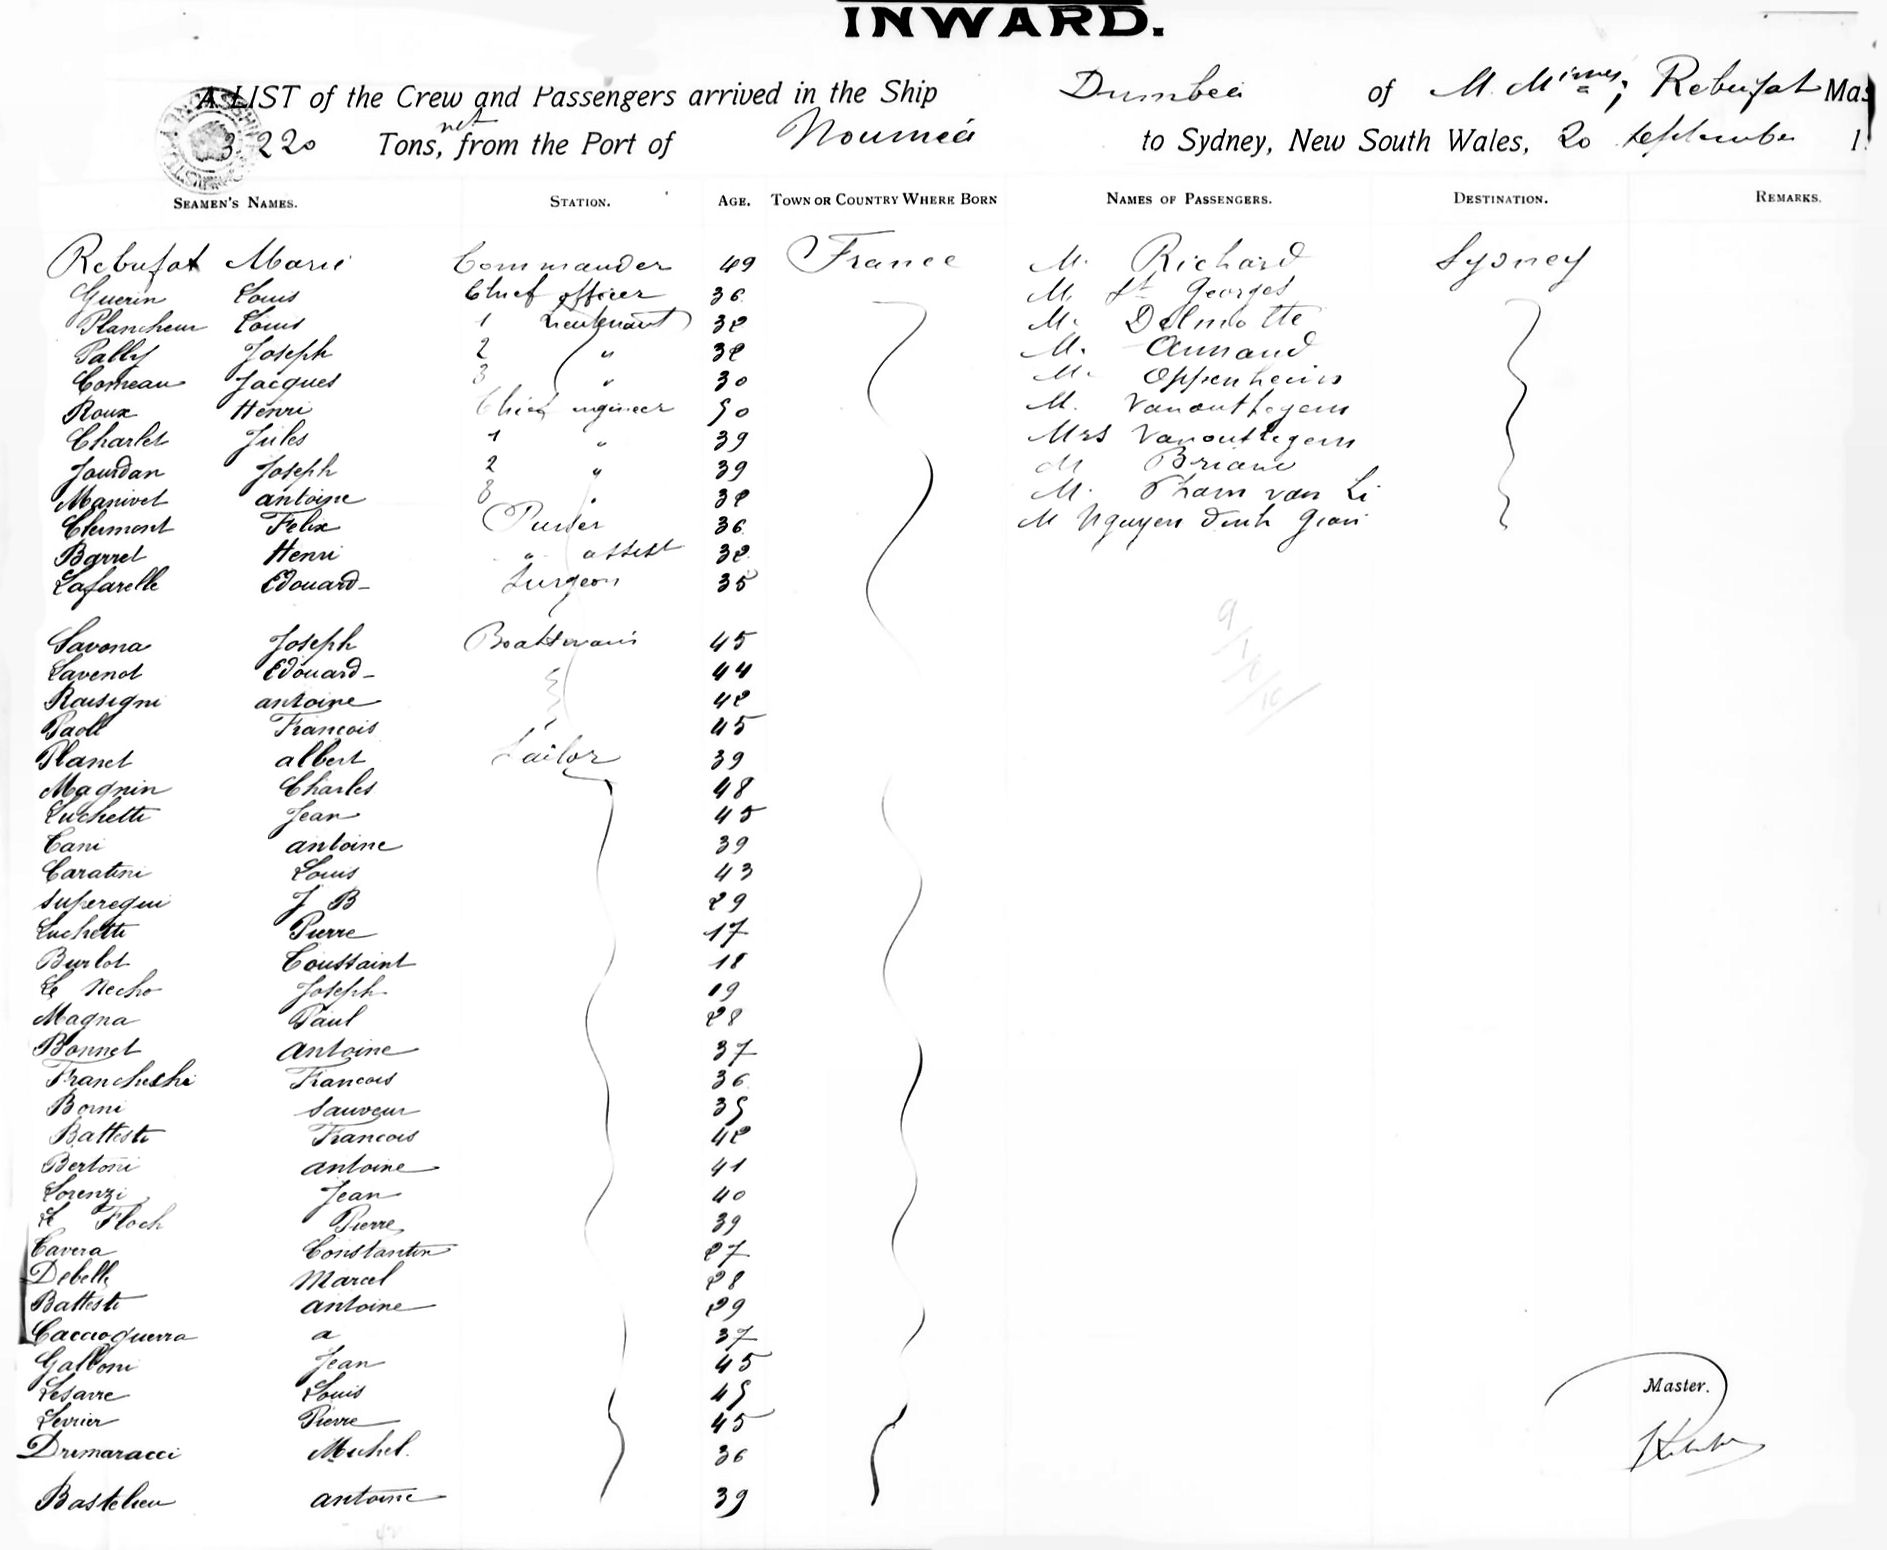 INWARD.
A LIST of the Crew and Passengers arrived in the Ship Dumbea of M. Mimes; Rebufat Mas
3220 Tons, net from the Port of Nouméa to Sydney, New South Wales, 20 September 1
SEAMEN'S NAMES. STATION. AGE. TOWN OR COUNTRY WHERE BORN NAMES OF PASSENGERS. DESTINATION. REMARKS.
Rebufat Marie Commander 49 France M. Richard Sydney
Guerin Louis Chief officer 36 M. St Georges
Plancheur Louis 1 Lieutenant 32 M. Delmotte
Pally Joseph 2 " 32 M. Armand
Comeau Jacques 3 " 30 M. Oppenheim
Roux Henri Chief engineer 50 M. Vanouthegem
Charlet Jules 1 " 39 Mrs Vanouthegem
Jourdan Joseph 2 " 39 M Briand
Manivet antoine 3 " 32 M. Pham van Li
Clermont Felix Purser 36 M Nguyen Dinh Gian
Barret Henri " assist 32
Lafarelle Edouard 35 Surgeon
Savona Joseph Boatswain 45
Lavenot Edouard 44
Raisigni antoine 42
Paoli Francois 45
Planet albert Sailor 39
Magnin Charles 48
Luchetti Jean 45
Cani antoine 39
Caratini Louis 43
Superequi J B 29
Luchetti Pierre 17
Burlot Toussaint 18
Le Necho Joseph 19
Magna Paul 28
Bonnet Antoine 37
Francheshi Francois 36
Borni Sauveur 35
Battesti Francois 42
Bertoni antoine 41
Lorenzi Jean 40
Le Floch Pierre 39
Cavera Constantin 27
Debelle Marcel 28
Battesti antoine 29
Caccioguerra a 37
Galloni Jean 45
Lesavre Louis 45
Levrier Pierre 45
Master.
Drimaracci Michel. 36
Bastelieu antoine 39